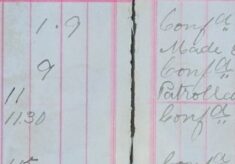 1.9 Conf d
Made
9 Conf d
11 Patrolled
11.30 Conf d